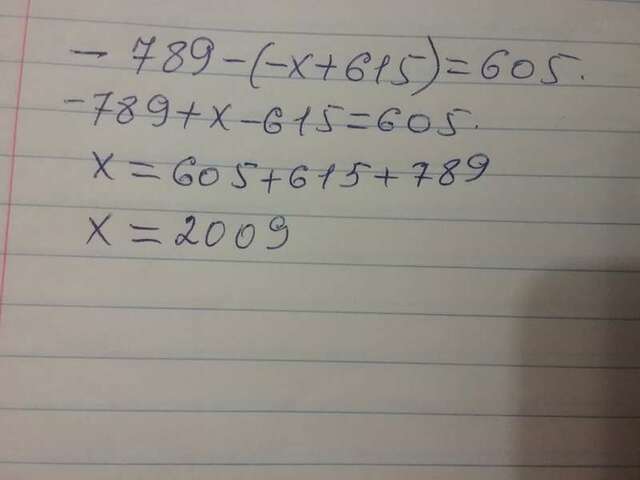 - 789-(-x+615)=605.
-789+x-615=605.
x=605+615+789
x=2009